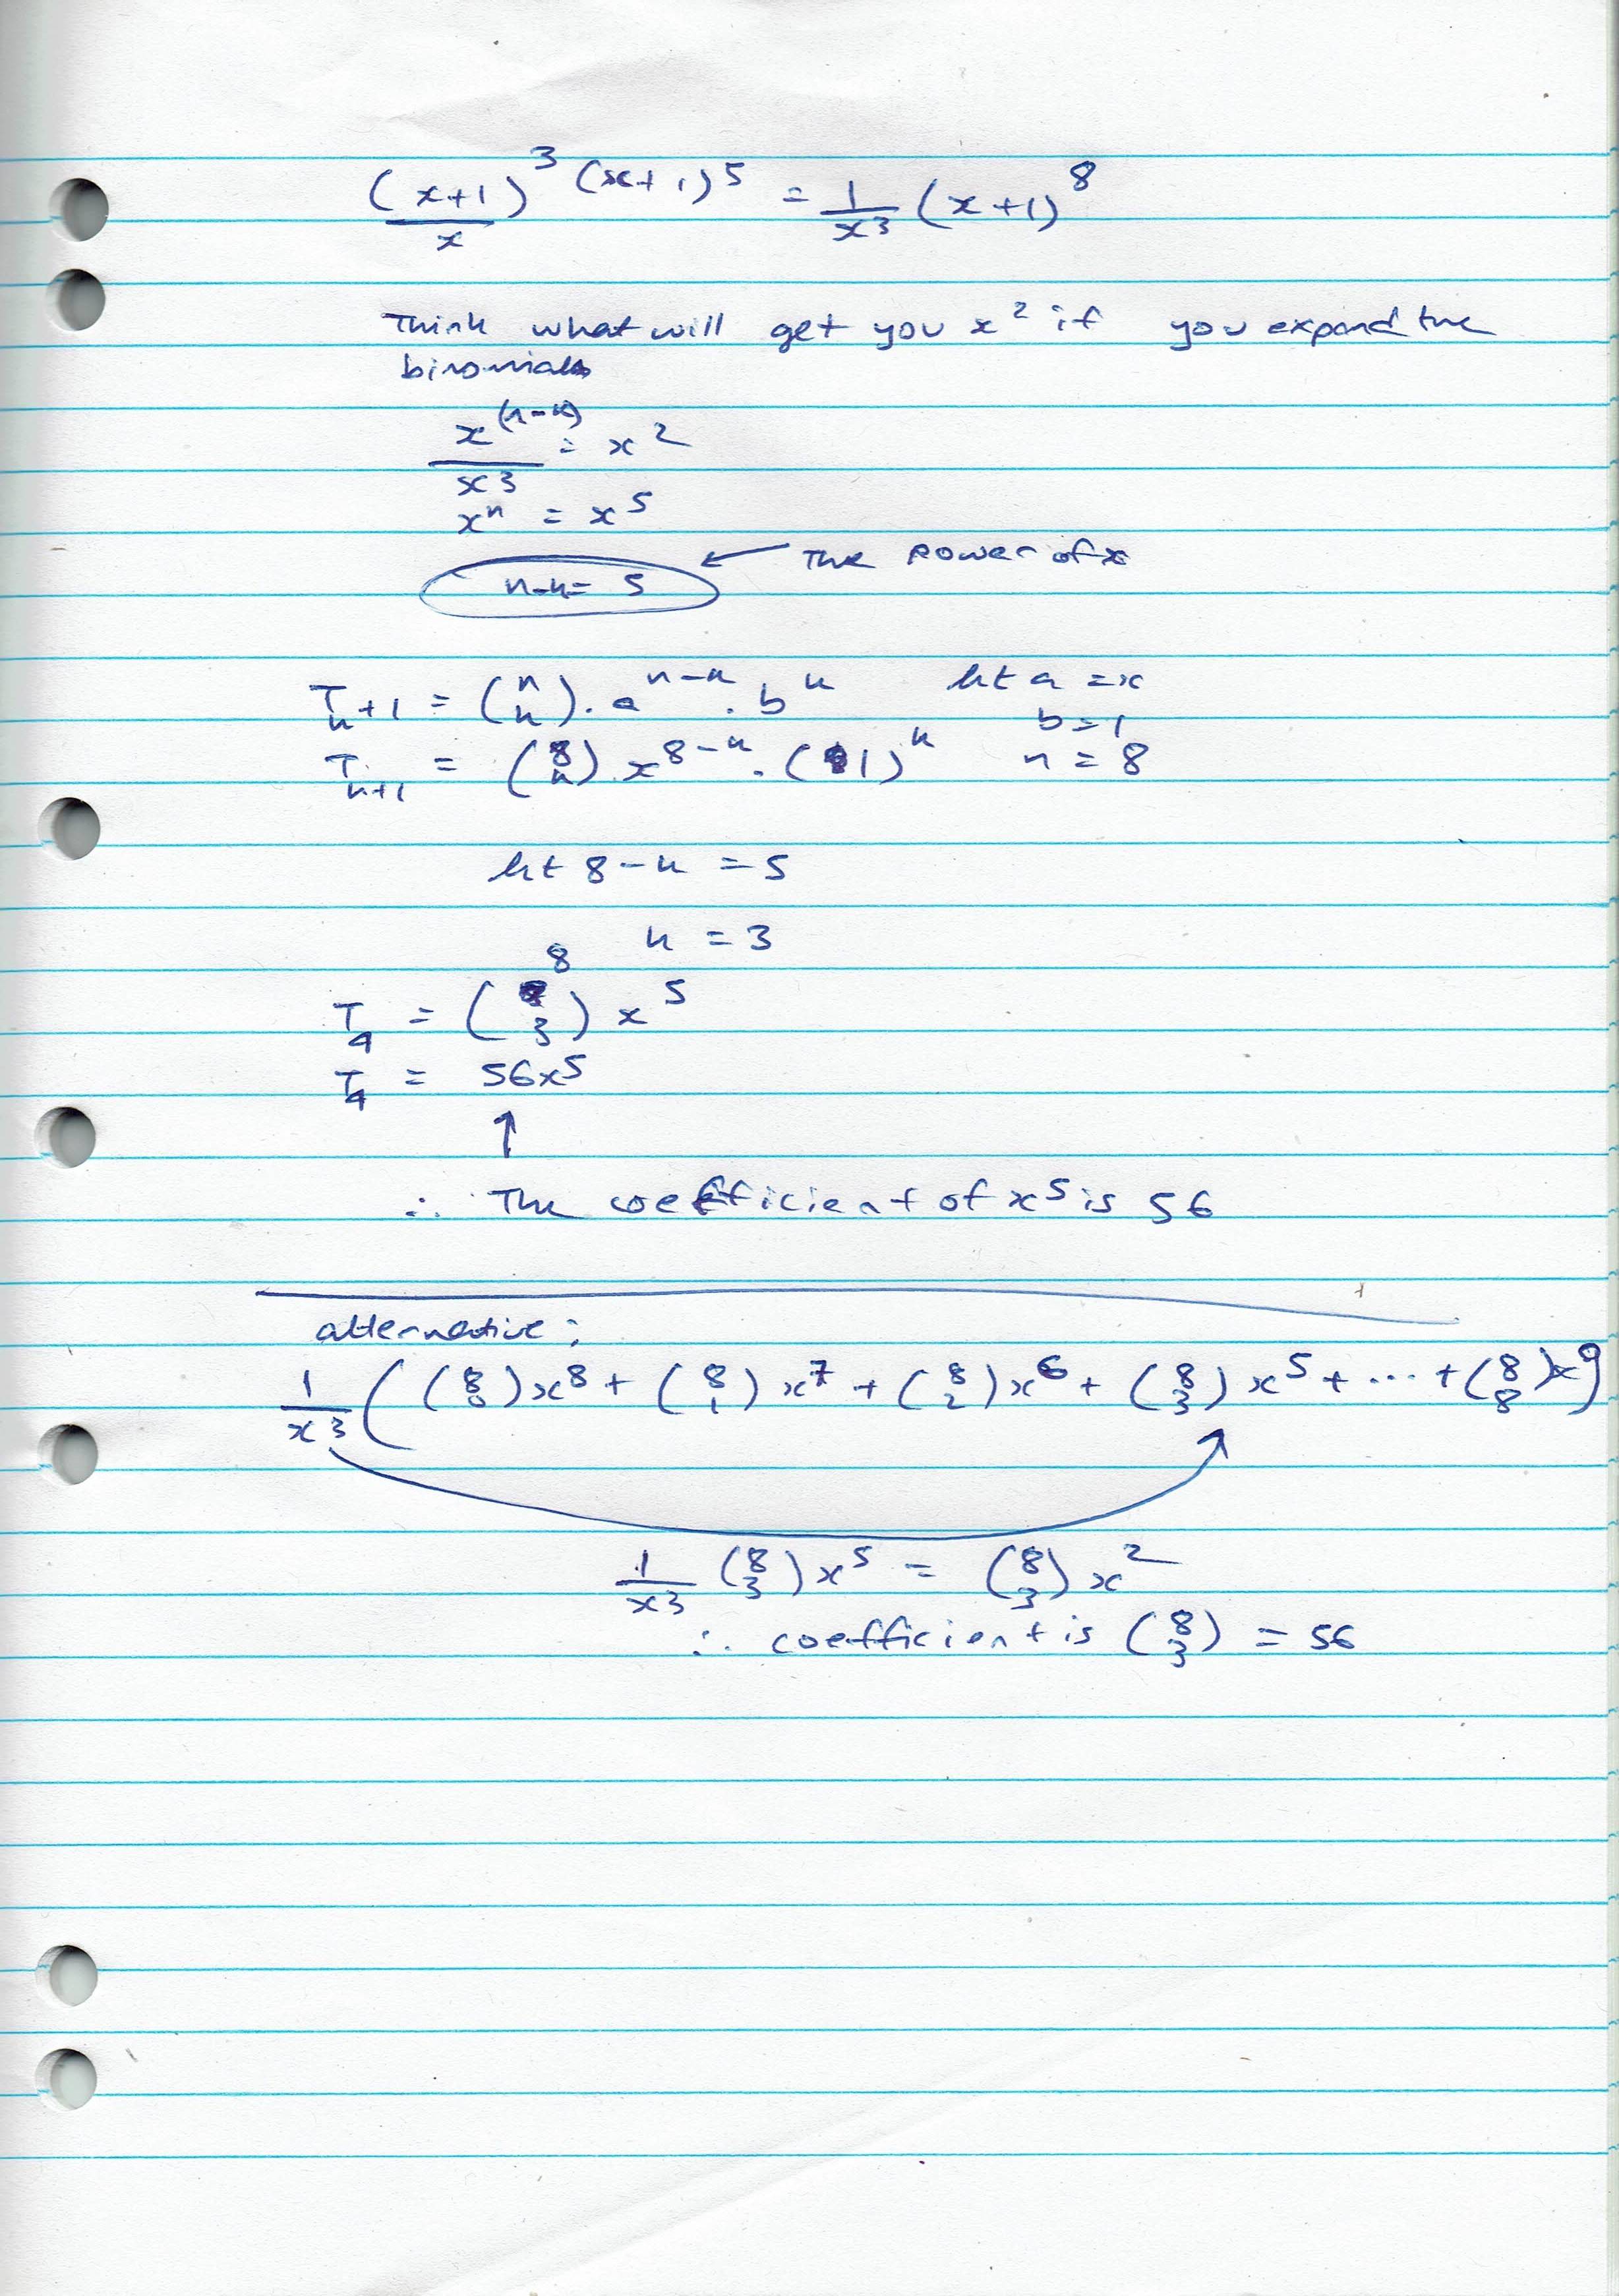 (x+1/x)³ (x+1)⁵ = 1/x³ (x+1)⁸
Think what will get you x² if you expand the
binomials
x^(n-k)/x³ = x²
xⁿ = x⁵
n-k = 5 ← The power of x
T_k+1 = (n k) . a^n-k . b^k let a = x
b = 1
T_k+1 = (8 k) . x^8-k . (1)^k n = 8
let 8-k = 5
k = 3
T₄ = (8 3) x⁵
T₄ = 56x⁵
↑
∴ The coefficient of x⁵ is 56
alternative:
1/x³ ( (8 0)x⁸ + (8 1)x⁷ + (8 2)x⁶ + (8 3)x⁵ + ... + (8 8)x⁰ )
1/x³ (8 3)x⁵ = (8 3)x²
∴ coefficient is (8 3) = 56